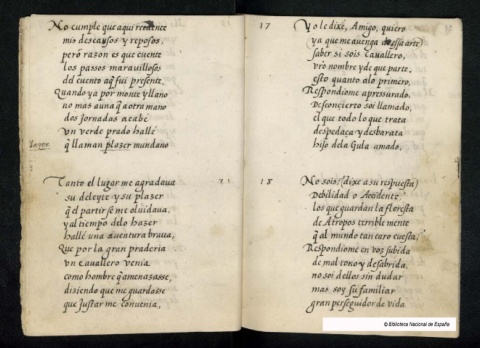 No cumple que aqui recuente
mis descansos y reposos,
però razon es que cuente
los passos marauillosos
del cuento q̃ fui presente,
Quando ya por monte y llano
no mas auna q̃ a otra mano
dos jornadas acabè
vn verde prado hallè
q̃ llaman plazer mundano
Tanto el lugar me agradaua
su deleyte y su plazer
q̃ el partir se me oluidaua,
y al tiempo delo hazer
hallè una auentura braua,
Que por la gran praderia
vn Cauallero venia
como hombre q̃ amenazasse,
diziendo que me guardasse
que justar me conuenia,
17
Yo le dixe, Amigo, quiero
ya que me auenga de essa arte
saber si sois Cauallero,
vr̃o nombre y de que parte,
esto quanto alo primero,
Respondiome apressurado,
Desconçierto soi llamado,
el que todo lo que trata
despedaça y desbarata
hijo dela Gula amado,
18
No sois (dixe a su respuesta)
Debilidad o Accidente
los que guardan la floresta
de Atropos terriblemente
q̃ al mundo tan caro cuesta,
Respondiome en voz subida
de mal tono y desabrida,
no soi dellos sin dudar
mas soy su familiar
gran perseguidor de vida
© Biblioteca Nacional de España